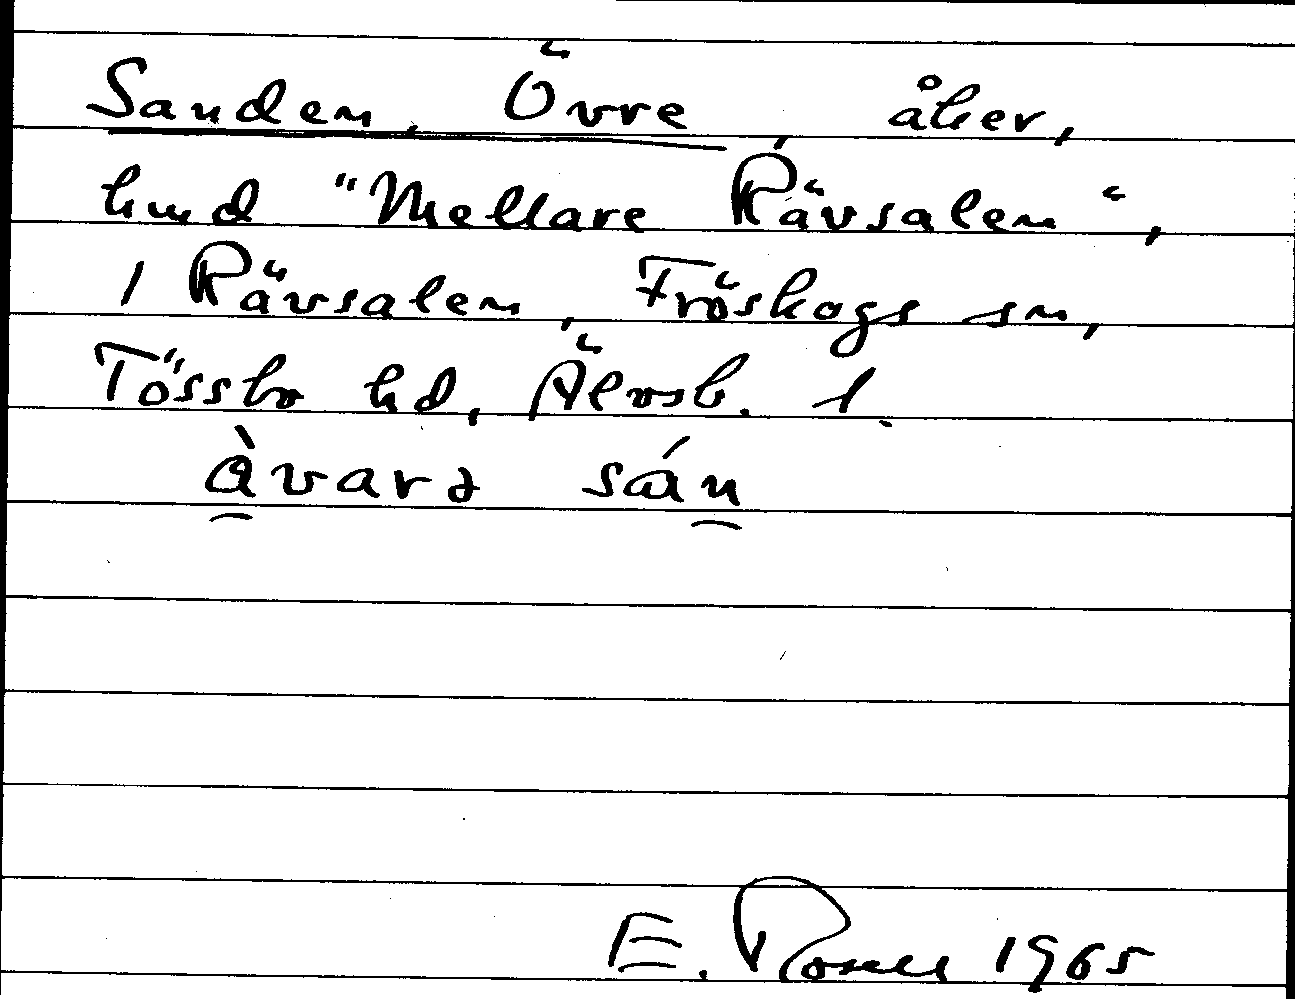 Sanden, Övre, åker,
hmd "Mellare Rävsalen",
1 Rävsalen, Fröskogs sn,
Tössbo hd, Älvsb. l.
àvarə sán
E. Rosell 1965